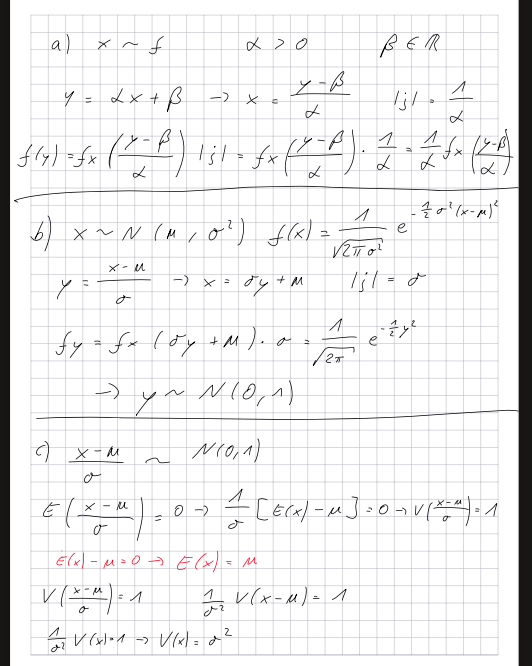 a) x ~ f α > 0 β ∈ ℝ
y = αx + β → x = (y-β)/α |j| = 1/α
f(y) = fx((y-β)/α) |j| = fx((y-β)/α) · 1/α = 1/α fx((y-β)/α)
b) x ~ N(μ, σ²) f(x) = 1/√(2πσ²) e^(-1/2 σ²(x-μ)²)
y = (x-μ)/σ → x = σy + μ |j| = σ
fy = fx(σy + μ) · σ = 1/√(2π) e^(-1/2 y²)
→ y ~ N(0,1)
c) (x-μ)/σ ~ N(0,1)
E((x-μ)/σ) = 0 → 1/σ [E(x) - μ] = 0 → V((x-μ)/σ) = 1
E(x) - μ = 0 → E(x) = μ
V((x-μ)/σ) = 1 1/σ² V(x-μ) = 1
1/σ² V(x) = 1 → V(x) = σ²